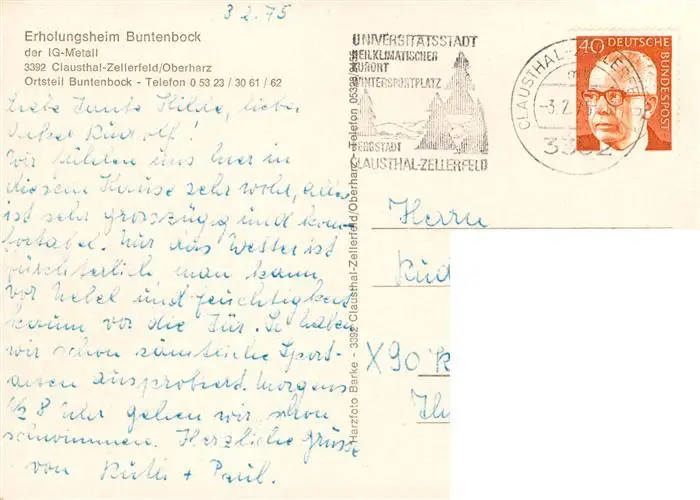 3 2. 75
Erholungsheim Buntenbock
der IG-Metall
3392 Clausthal-Zellerfeld/Oberharz
Ortsteil Buntenbock - Telefon 0 53 23 / 30 61 / 62
Liebe Tante Hilde, lieber
Onkel Rudolf!
Wir fühlen uns hier in
diesem Hause sehr wohl, alles
ist sehr grosszügig und kom-
fortabel. Nur das Wetter ist
fürchterlich man kann
vor Nebel und Feuchtigkeit
kaum vor die Tür. So haben
wir schon sämtliche Sport-
arten ausprobiert. Morgens
1/2 8 Uhr gehen wir schon
schwimmen. Herzliche Grüsse
von Ruth + Paul.
Harzfoto Barke - 3392 Clausthal-Zellerfeld/Oberharz Telefon 05323
UNIVERSITÄTSSTADT
HEILKLIMATISCHER
KURORT
WINTERSPORTPLATZ
BERGSTADT
CLAUSTHAL-ZELLERFELD
CLAUSTHAL-ZELLERFELD
-3.2.
3392
40 DEUTSCHE
BUNDESPOST
Herrn
Rüd
X90